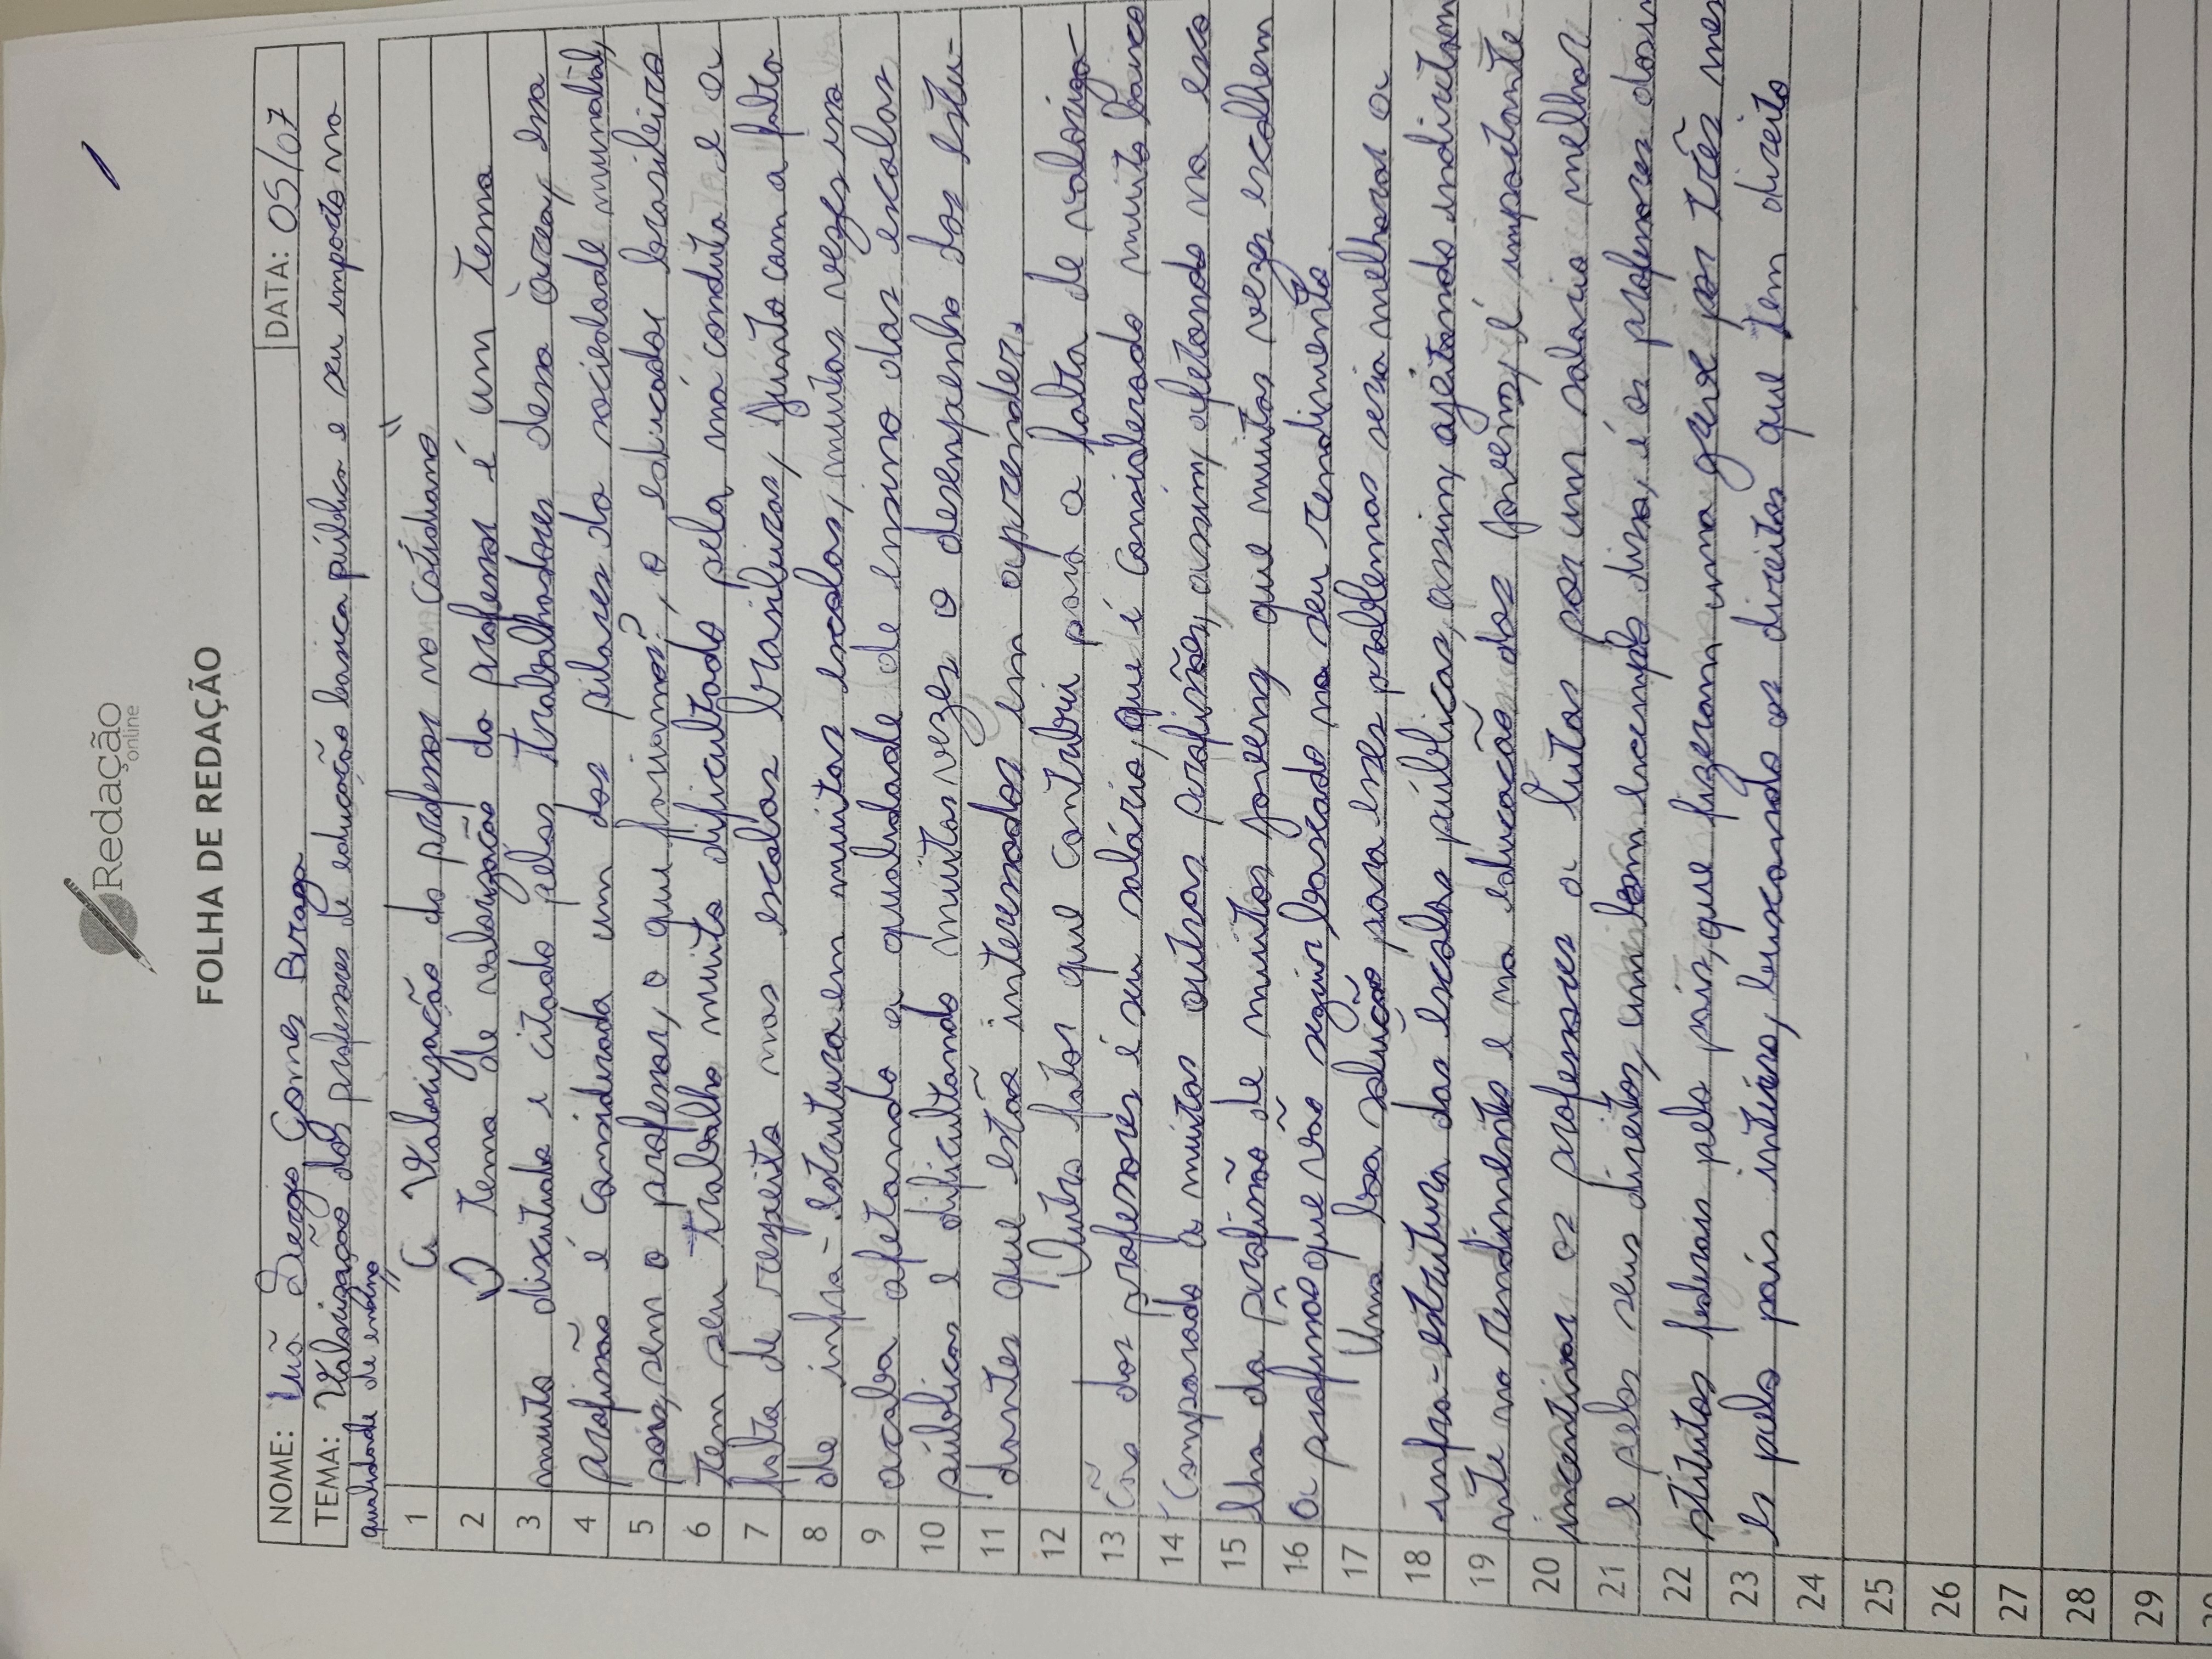 Redação
online
FOLHA DE REDAÇÃO
NOME: Luã Sergio Gomes Braga DATA: 05/07
TEMA: Valorização dos professores de educação basica pública e seu impacto na
qualidade de ensino
1 "A Valorização do professor no cotidiano"
2 O tema de valorização do professor é um tema
3 muito discutido e citado pelos trabalhadores dessa àrea, essa
4 profissão é considerada um dos pilares da sociedade mundial,
5 pois, sem o professor, o que fariamos?, o educador brasileiro
6 tem seu trabalho muito dificultado pela má conduta e a
7 falta de respeito nas escolas brasileiras, junto com a falta
8 de infra-estrutura em muitas escolas, muitas vezes isso
9 acaba afetando a qualidade de ensino das escolas
10 públicas e dificultando muitas vezes o desenpenho dos estu-
11 dantes que estão interessados em aprender.
12 Outro fator que contribui para a falta de valoriza-
13 cão dos professores é seu salário, que é considerado muito baixo
14 comparado a muitas outras profissões, assim, afetando na esco
15 lha da profissão de muitos jovens que muitas vezes escolhem
16 a profissão que vão seguir baseado no seu rendimento.
17 Uma boa solução para esses problemas seria melhorar a
18 infra-estrutura das escolas públicas, assim, ajeitando indiretam
19 nte no rendimento e na educacão dos jovens, é importante
20 incentivar os professores a lutar por um salario melhor
21 e pelos seus direitos, um bom exemplo disso, é os professores dos in
22 stitutos federais pelo país, que fizeram uma greve por três mes
23 es pelo país inteiro, buscando os direitos que tem direito
24
25
26
27
28
29